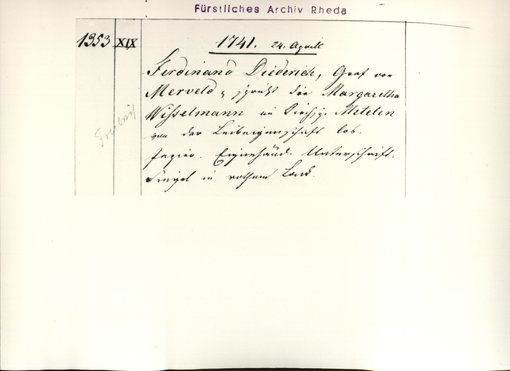 Fürstliches Archiv Rheda
1353 XIX 1741. 24. Aprils
Ferdinand Diederich, Graf von
Merveld, spricht die Margaretha
Wisselmann im Kirchsp. Metelen
von der Leibeigenschaft los.
Papier. Eigenhänd. Unterschrift.
Siegel in rothem Lack.
Freibrief